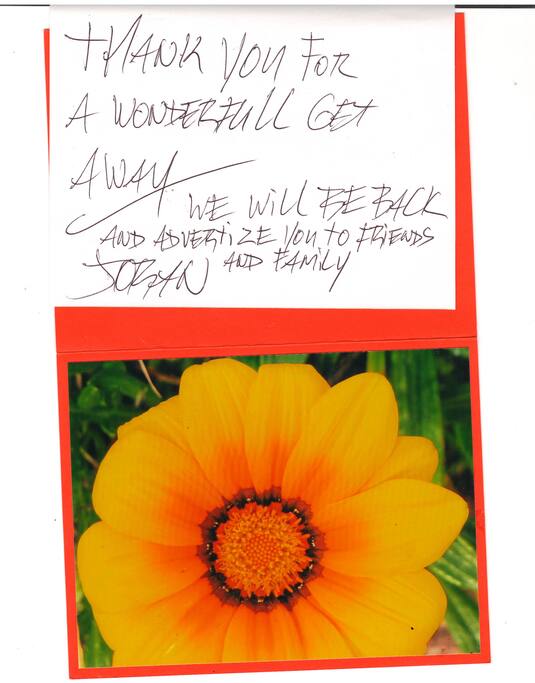 THANK YOU FOR
A WONDERFULL GET
AWAY
WE WILL BE BACK
AND ADVERTIZE YOU TO FRIENDS
AND FAMILY